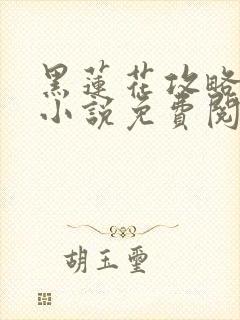 黑蓮花攻略
小說免費閱
胡玉璽